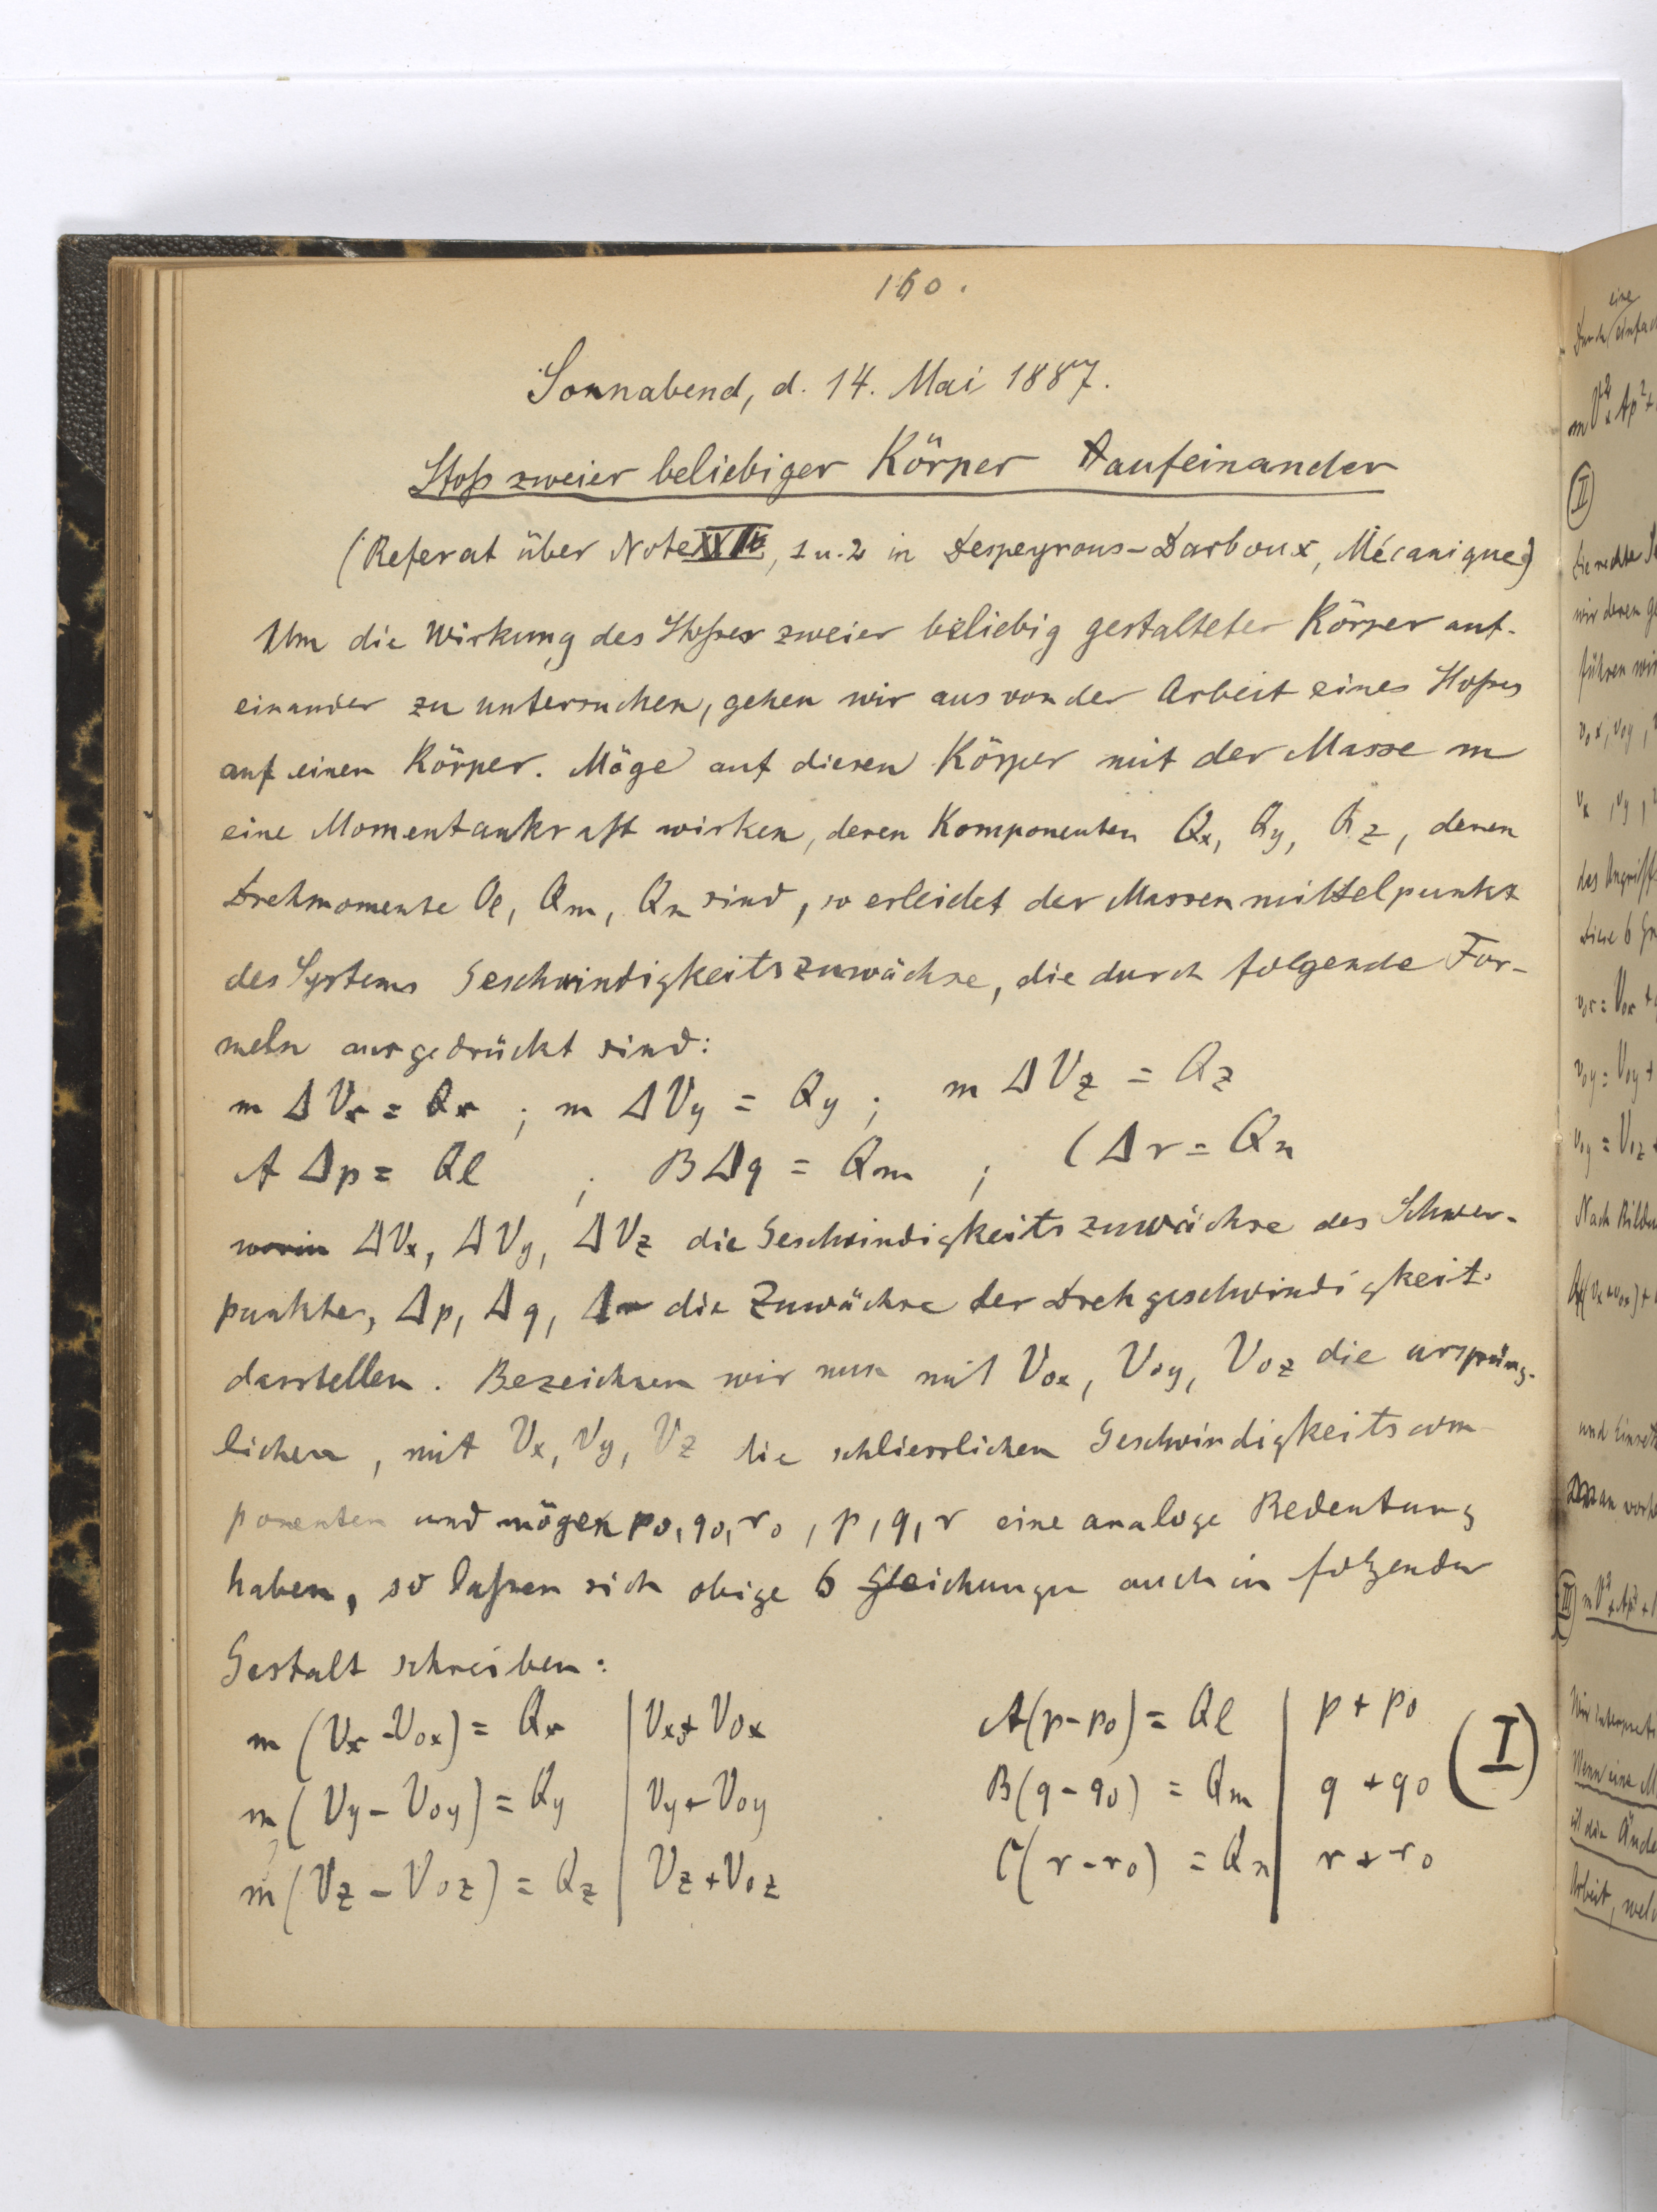 160.
Sonnabend, d. 14. Mai 1887.
Stoß zweier beliebiger Körper aufeinander
(Referat über Note , 1 u. 2 in Despeyrous-Darboux, Mécanique)
Um die Wirkung des Stoßes zweier beliebig gestalteter Körper auf-
einander zu untersuchen, gehen wir aus von der Arbeit eines Stoßes
auf einen Körper. Möge auf diesen Körper mit der Masse m
eine Momentankraft wirken, deren Komponenten Qx, Qy, Qz, deren
Drehmomente Ql, Qm, Qn sind, so erleidet der Massenmittelpunkt
des Systems Geschwindigkeitszuwächse, die durch folgende For-
meln ausgedrückt sind:
m ΔVx = Qx ; m ΔVy = Qy ; m ΔVz = Qz
A Δp = Ql ; B Δq = Qm ; C Δr = Qn
worin ΔVx, ΔVy, ΔVz die Geschwindigkeitszuwächse des Schwer-
punktes, Δp, Δq, Δr die Zuwächse der Drehgeschwindigkeit
darstellen. Bezeichnen wir nun mit Vox, Voy, Voz die ursprüng-
lichen, mit Vx, Vy, Vz die schliesslichen Geschwindigkeitscom-
ponenten und mögen po, qo, ro, p, q, r eine analoge Bedeutung
haben, so laßen sich obige 6 Gleichungen auch in folgender
Gestalt schreiben:
m (Vx - Vox) = Qx | Vx + Vox A(p - po) = Ql | p + po
m (Vy - Voy) = Qy | Vy + Voy B(q - qo) = Qm | q + qo (I)
m (Vz - Voz) = Qz | Vz + Voz C(r - ro) = Qn | r + ro
eine
Durch
(II)
Die rechte
wir deren
führen wir
vox, voy,
vx, vy,
des Angriff
Diese 6
vox = Vox +
voy = Voy +
voz = Voz +
Nach
und
(III)
Wenn eine
ist die
Arbeit,